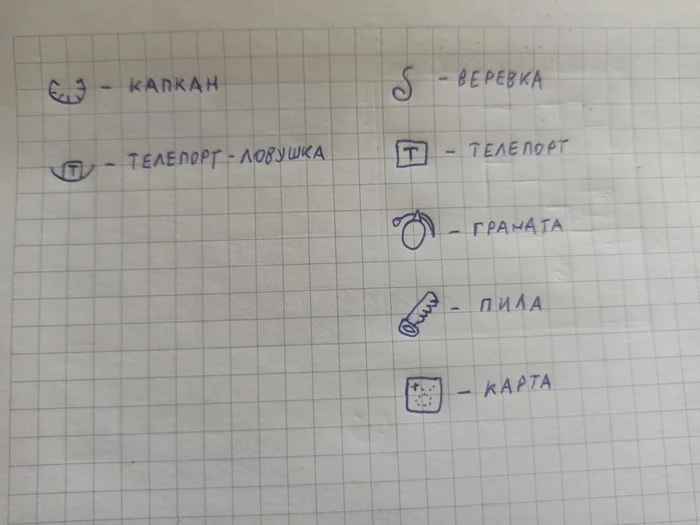 — КАПКАН
Т — ТЕЛЕПОРТ-ЛОВУШКА
— ВЕРЕВКА
Т — ТЕЛЕПОРТ
— ГРАНАТА
— ПИЛА
— КАРТА